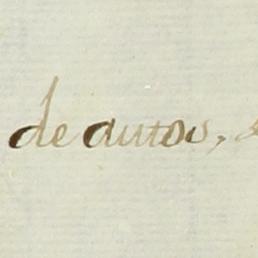 de autos,